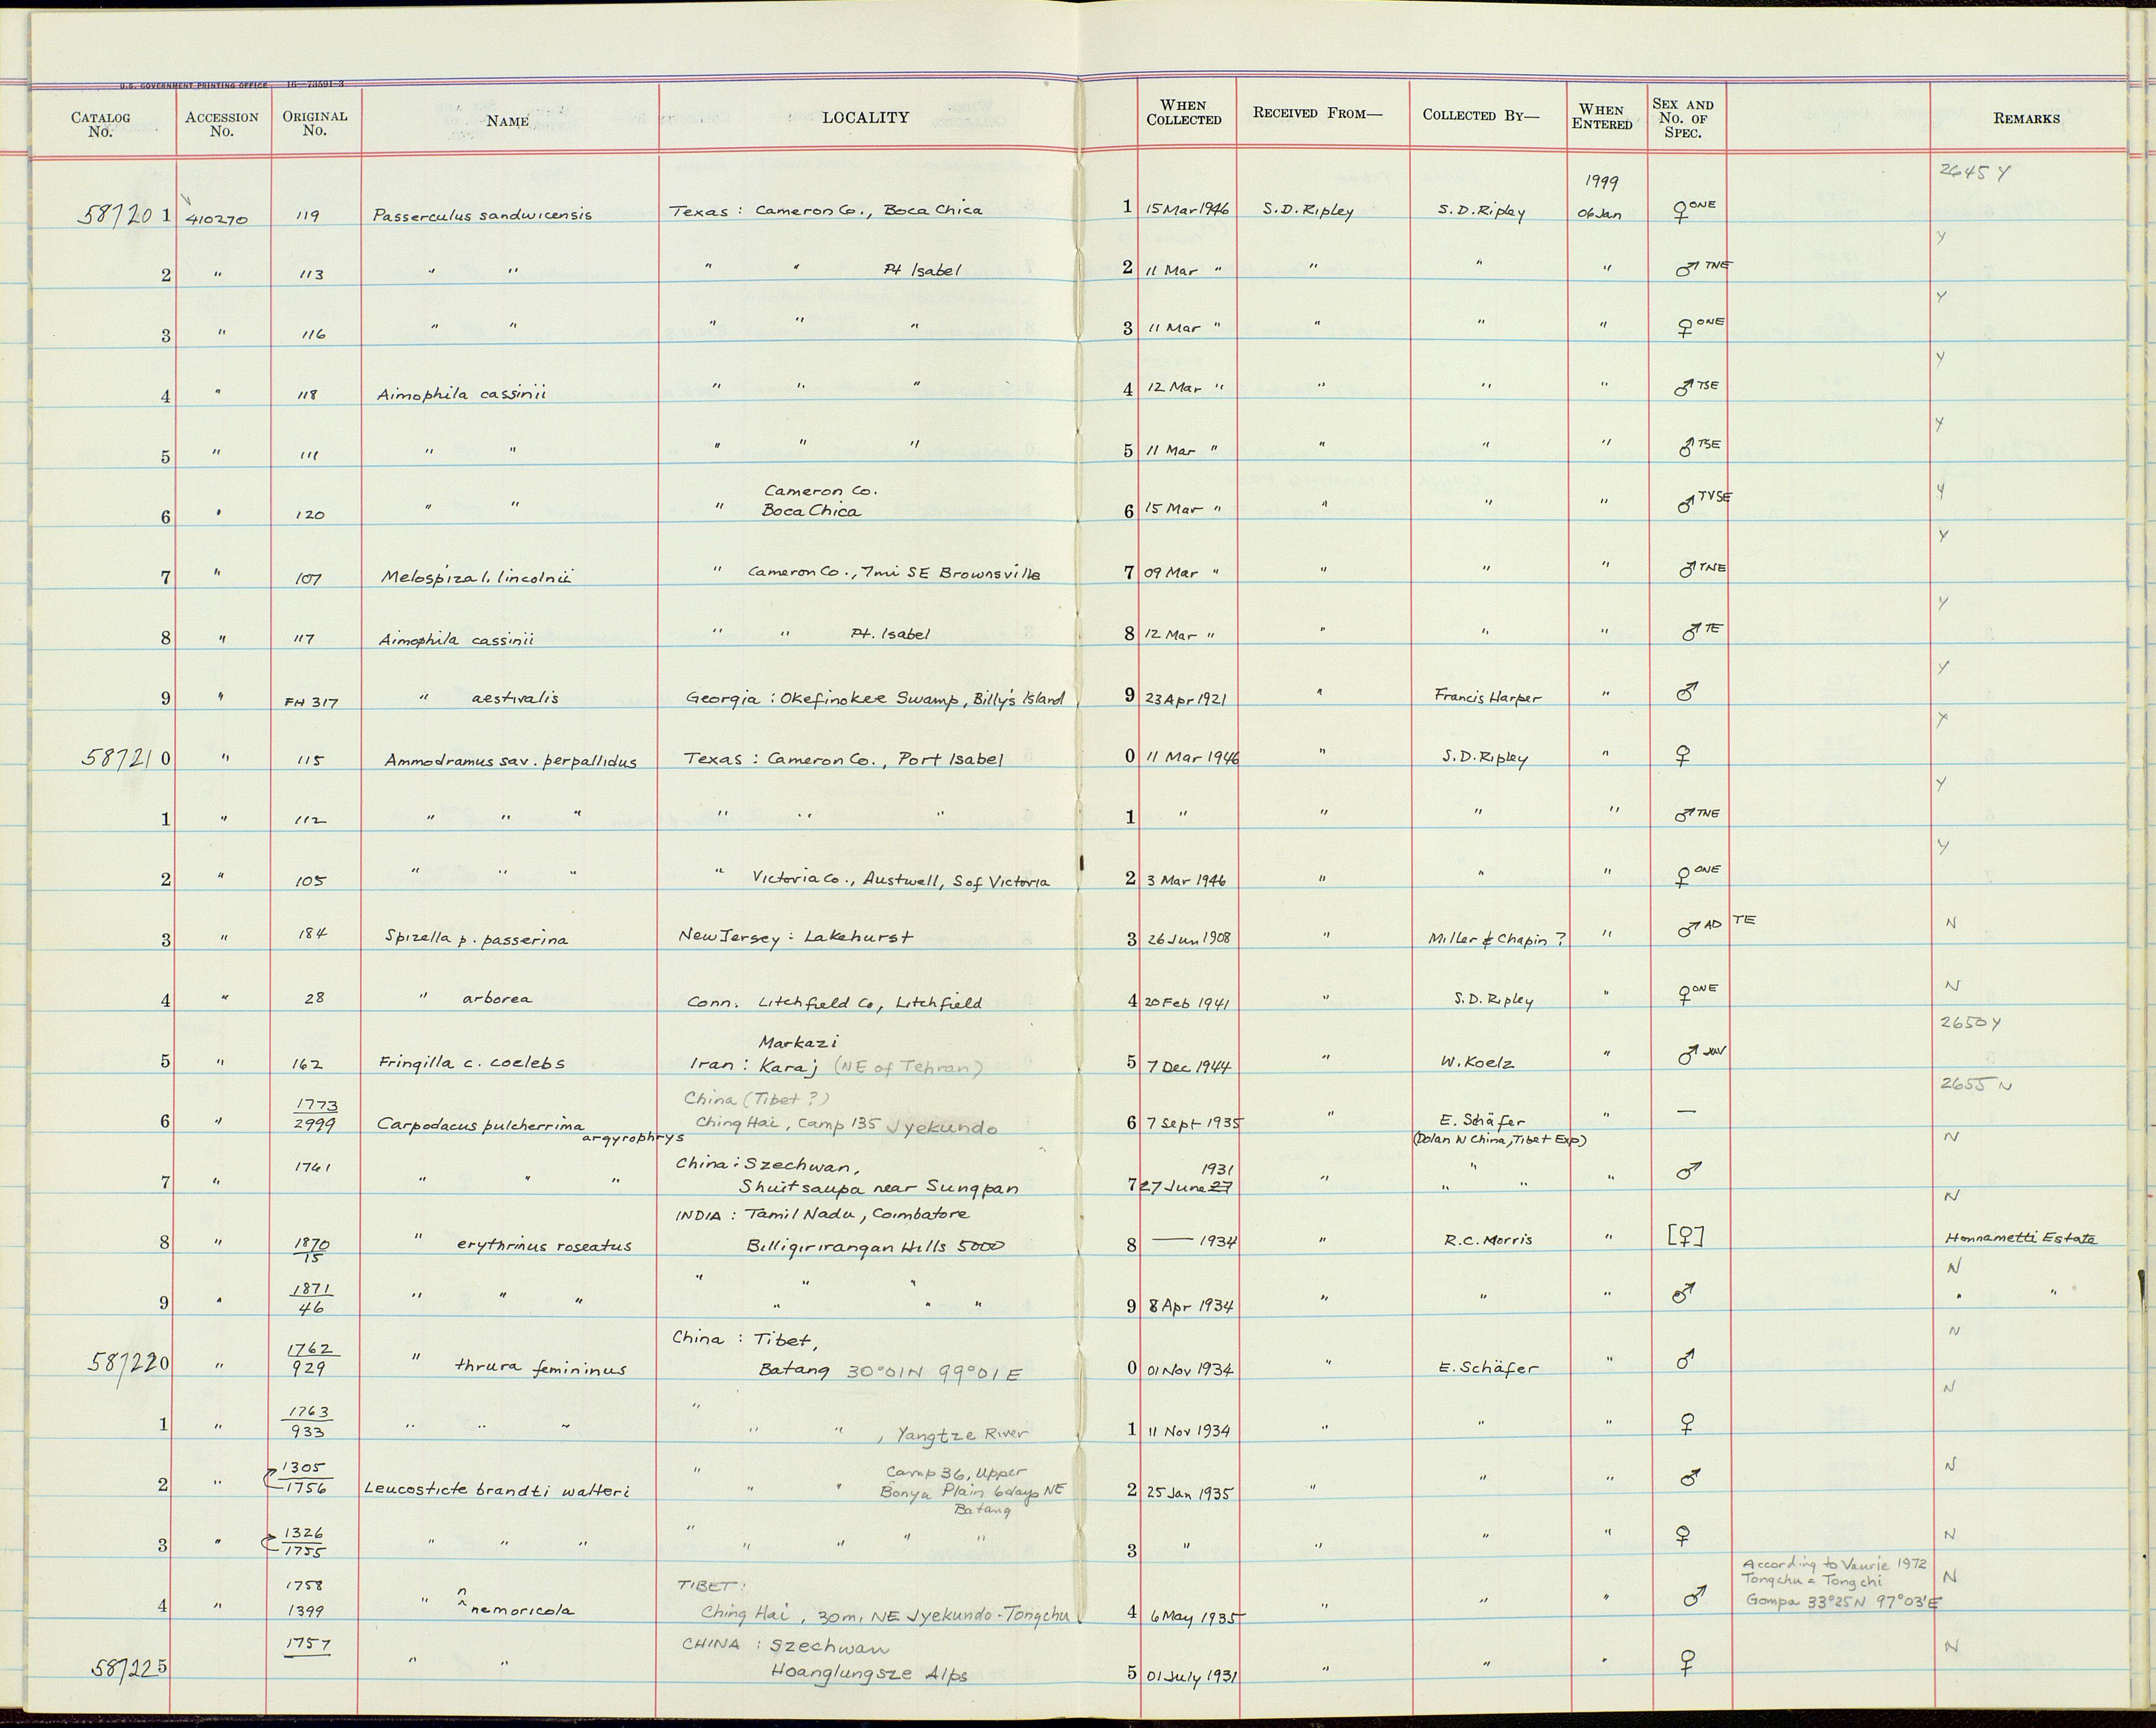 U.S. GOVERNMENT PRINTING OFFICE 16—73591-3
CATALOG No. ACCESSION No. ORIGINAL No. NAME LOCALITY WHEN COLLECTED RECEIVED FROM— COLLECTED BY— WHEN ENTERED SEX AND No. OF SPEC. REMARKS
1999 2645 Y
587201 410270 119 Passerculus sandwicensis Texas : Cameron Co., Boca Chica 1 15 Mar 1946 S.D. Ripley S.D. Ripley 06 Jan ♀ ONE
Y
2 " 113 " " " " Pt Isabel 2 11 Mar " " " " ♂ TNE
Y
3 " 116 " " " " " 3 11 Mar " " " " ♀ ONE
Y
4 " 118 Aimophila cassinii " " " 4 12 Mar " " " " ♂ TSE
Y
5 " 111 " " " " " 5 11 Mar " " " " ♂ TSE
Cameron Co. Y
6 " 120 " " " Boca Chica 6 15 Mar " " " " ♂ TVSE
Y
7 " 107 Melospiza l. lincolnii " Cameron Co., 7mi SE Brownsville 7 09 Mar " " " " ♂ TNE
Y
8 " 117 Aimophila cassinii " " Pt. Isabel 8 12 Mar " " " " ♂ TE
Y
9 " FH 317 " aestivalis Georgia : Okefinokee Swamp, Billy's Island 9 23 Apr 1921 " Francis Harper " ♂
Y
587210 " 115 Ammodramus sav. perpallidus Texas : Cameron Co., Port Isabel 0 11 Mar 1946 " S.D. Ripley " ♀
Y
1 " 112 " " " " " " 1 " " " " ♂ TNE
Y
2 " 105 " " " " Victoria Co., Austwell, S of Victoria 2 3 Mar 1946 " " " ♀ ONE
3 " 184 Spizella p. passerina New Jersey : Lakehurst 3 26 Jun 1908 " Miller & Chapin ? " ♂ AD TE N
4 " 28 " arborea Conn. Litchfield Co, Litchfield 4 20 Feb 1941 " S.D. Ripley " ♀ ONE N
Markazi 2650 Y
5 " 162 Fringilla c. coelebs Iran : Karaj (NE of Tehran) 5 7 Dec 1944 " W. Koelz " ♂ JUV
China (Tibet ?) 2655 N
6 " 1773 2999 Carpodacus pulcherrima Ching Hai, Camp 135 Jyekundo 6 7 Sept 1935 " E. Schäfer " —
argyrophrys (Dolan W China, Tibet Exp) N
1761 China : Szechwan, 1931 "
7 " " " " Shuitsaupa near Sungpan 7 27 June 27 " " " " ♂
INDIA : Tamil Nadu, Coimbatore N
8 " 1870 15 " erythrinus roseatus Billigirirangan Hills 5000 8 — 1934 " R.C. Morris " [♀] Honnametti Estate
" " " N
9 " 1871 46 " " " " " " 9 8 Apr 1934 " " " ♂ " "
China : Tibet, N
587220 " 1762 929 " thrura femininus Batang 30°01N 99°01E 0 01 Nov 1934 " E. Schäfer " ♂
" N
1 " 1763 933 " " " " " , Yangtze River 1 11 Nov 1934 " " " ♀
" Camp 36, Upper N
2 " 1305 1756 Leucosticte brandti walteri " " Bonya Plain 6 days NE 2 25 Jan 1935 " " " ♂
Batang
"
3 " 1326 1755 " " " " " " " 3 " " " " ♀ N
According to Vaurie 1972
1758 TIBET : Tongchu = Tong chi N
4 " 1399 " nemoricola Ching Hai, 30mi NE Jyekundo - Tongchu 4 6 May 1935 " " " ♂ Gompa 33°25N 97°03'E
1757 CHINA : Szechwan N
587225 " " Hoanglungsze Alps 5 01 July 1931 " " " ♀